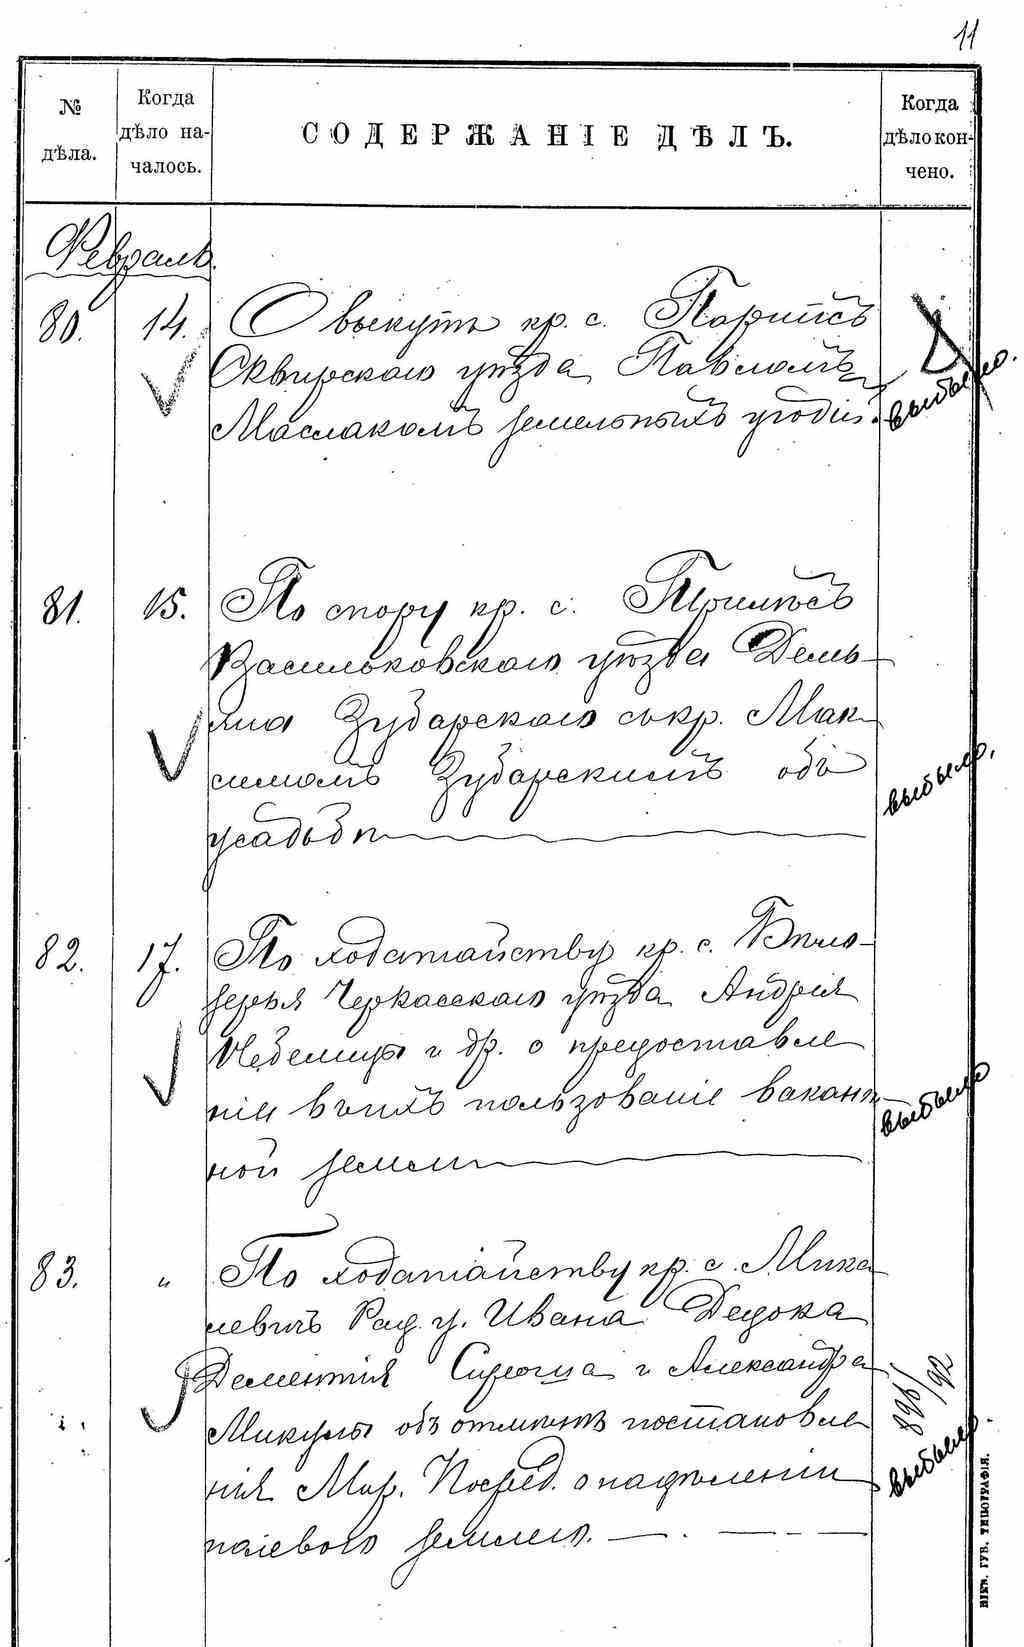 11
№ дѣла.
Когда дѣло на-чалось.
СОДЕРЖАНІЕ ДѢЛЪ.
Когда дѣло кон-чено.
Февраль.
80. 14. О выкупѣ кр. с. Парипсъ
Сквирскаго уѣзда Павломъ
Маслакомъ земельныхъ угодій.
выбыло.
81. 15. По спору кр. с.
Васильковскаго уѣзда Демь-
яна Зубарскаго съ кр. Мак-
симомъ Зубарскимъ объ
усадьбѣ
выбыло.
82. 17. По ходатайству кр. с. Бѣло-
зерья Черкасскаго уѣзда Андрея
и др. о предоставле
ніи въ ихъ пользованіе вакант-
ной земли
выбыло
83. " По ходатайству кр. с. Мика-
левичъ Рад. у. Ивана
Дементія и Александра
Микулы объ отмѣнѣ постановле
нія Мир. Посред. о надѣленіи
паевою землею.
896/92
выбыло.
КІЕВ. ГУБ. ТИПОГРАФІЯ.